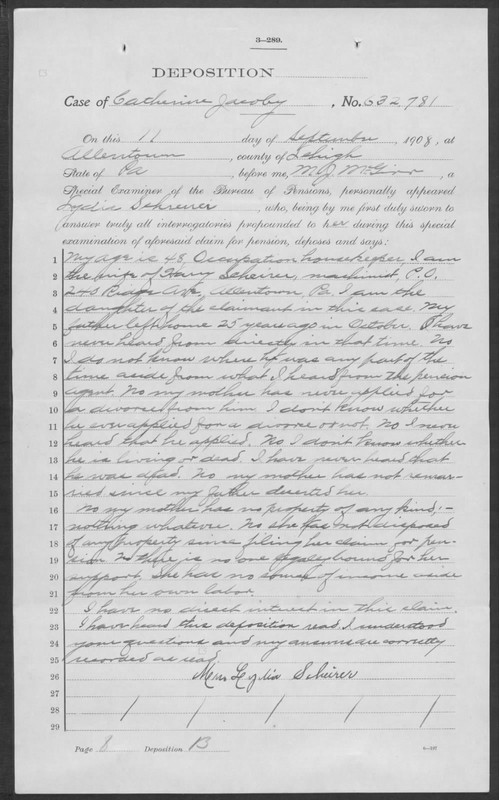 3-289.
DEPOSITION
Case of Catherine Jacoby, No. 632,781
On this 11 day of September, 1908, at
Allentown, county of Lehigh
State of Pa, before me, M. J. McGirr, a
Special Examiner of the Bureau of Pensions, personally appeared
Lydia Scheirer, who, being by me first duly sworn to
answer truly all interrogatories propounded to her during this special
examination of aforesaid claim for pension, deposes and says:
1 My age is 48, Occupation housekeeper, I am
2 the wife of Harry Scheirer, machinist, P.O.
3 240 Ridge Ave, Allentown, Pa. I am the
4 daughter of the claimant in this case. My
5 father left home 25 years ago in October. I have
6 never heard from directly in that time. No
7 I do not know where he was any part of the
8 time aside from what I heard from the pension
9 agent. No my mother has never applied for
10 a divorce from him. I don't know whether
11 he ever applied for a divorce or not. No I never
12 heard that he applied. No I don't know whether
13 he is living or dead. I have never heard that
14 he was dead. No my mother has not remar-
15 ried since my father deserted her.
16 No my mother has no property of any kind;-
17 nothing whatever. No she has not disposed
18 of any property since filing her claim for pen-
19 sion. No there is no one legally bound for her
20 support. She has no source of income aside
21 from her own labor.
22 I have no direct interest in this claim.
23 I have heard this deposition read. I understood
24 your questions and my answers are correctly
25 recorded as read.
26 Mrs Lydia Scheirer
27
28
29
Page 8 Deposition B